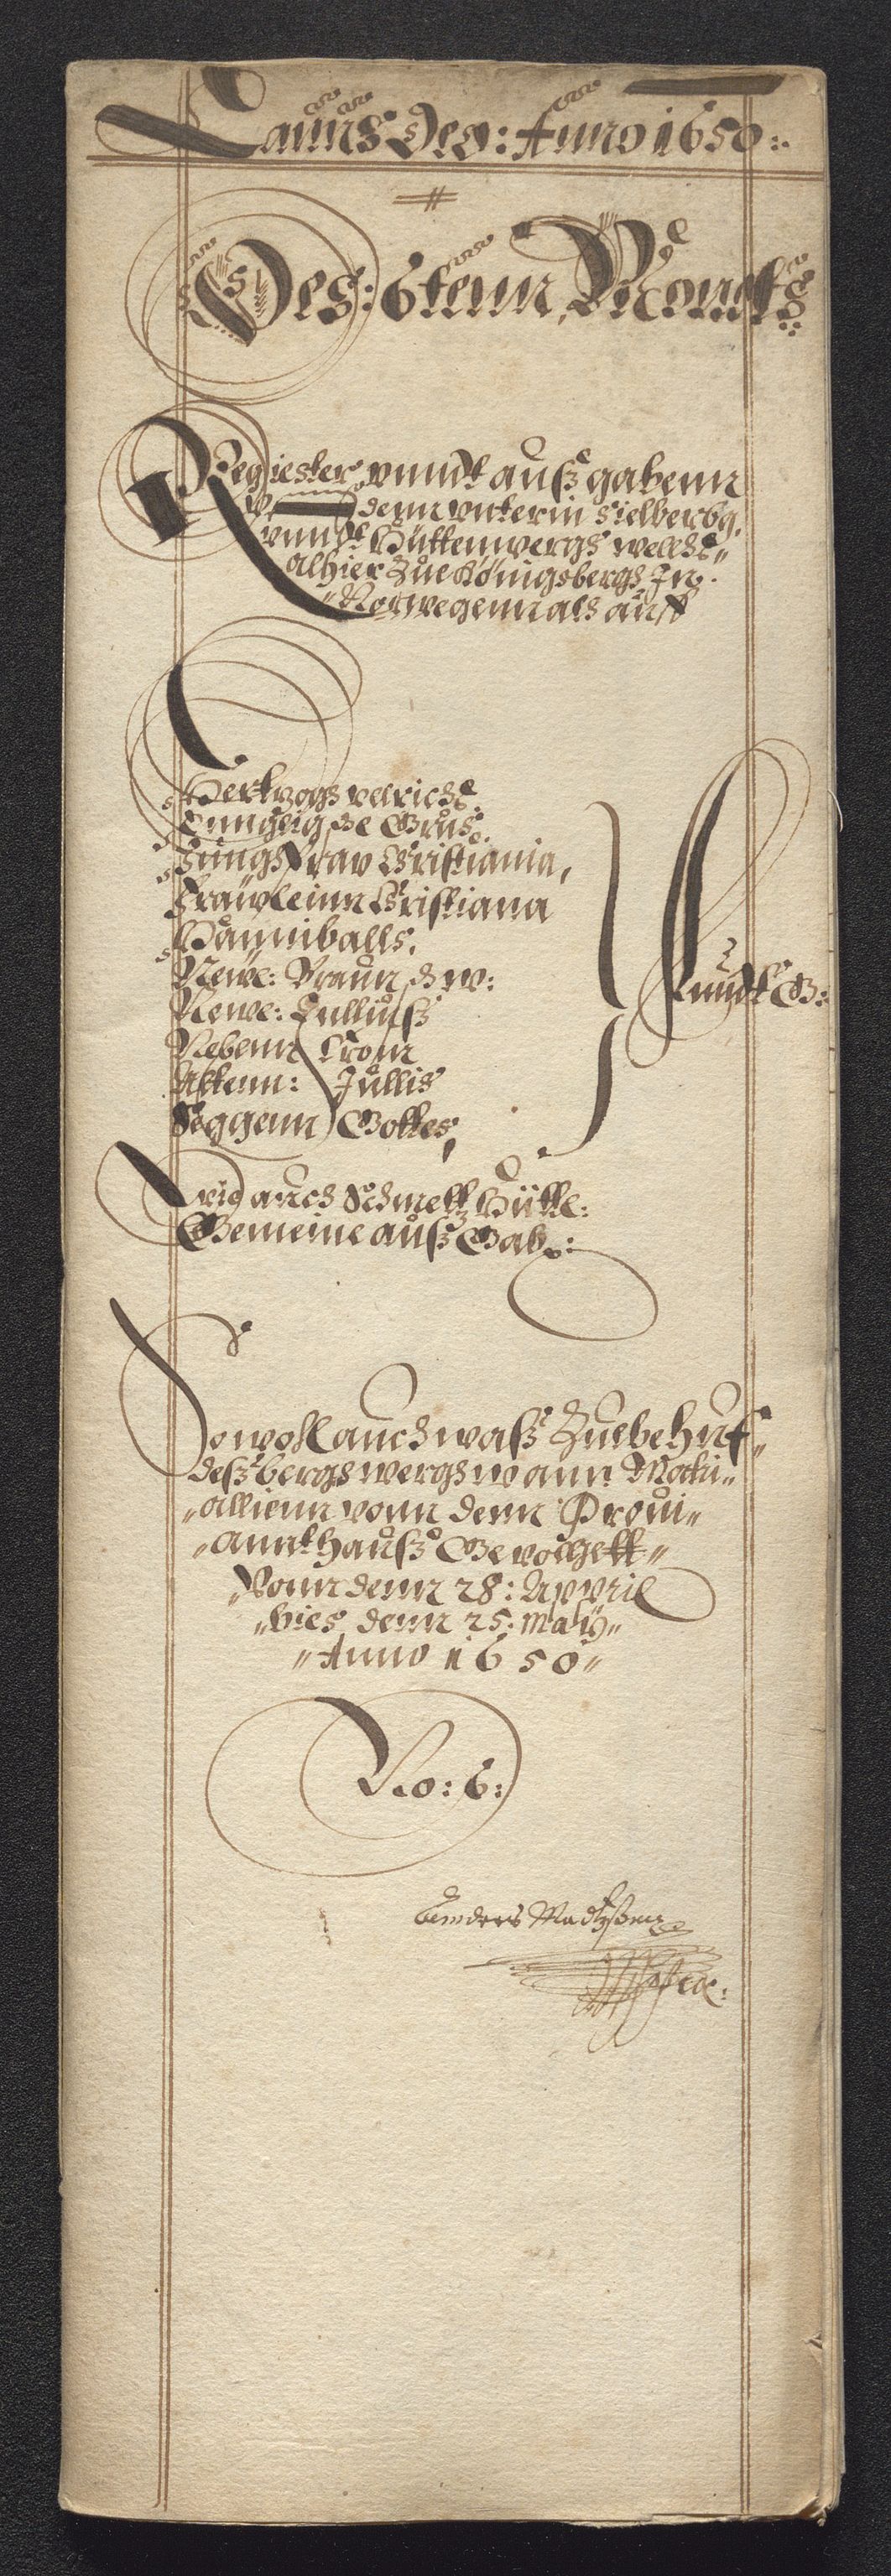 Laus Deo: Anno 1650:
Des: 6tenn Monets
Regiester vnndt außgabenn
denn vnterin Sielberbg.
vnndt Hüttenwergs welche
alhier Zue Königsbergs In
Norwegenn als auff
Hertzogs vllrichs
Jungfrav Cristiania,
Fräwleinn Cristiana
Hanniballs.
Newe: Braun
Newe: Jullius
Nebenn Crom
Altenn: Jullis
Seggenn Gottes,
Vndt G:
auch Schmeltz Hütte:
Gemeine auß Gab:
Sowoll auch waß Zue behuf
deß bergwergs vonn Matri
allienn vonn denn Provi
annthauß Gevollgett
Vonn denn 28: Appril
bies denn 25: Maÿ
Anno 1650
No: 6:
Anders Madtzsenn